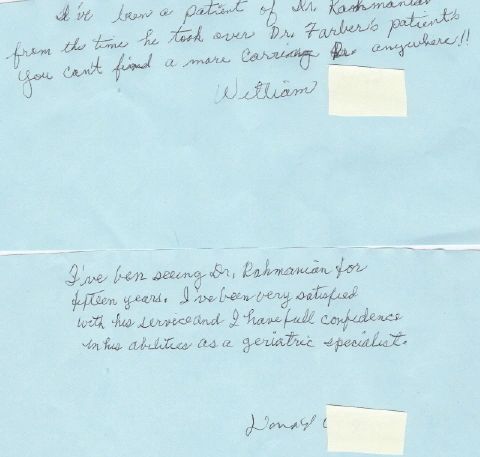 I've been a patient of Dr Rahmanian
from the time he took over Dr. Farber's patient's
You can't find a more carring Dr. anywhere!!
William
I've ben seeing Dr. Rahmanian for
fifteen years. I've been very satisfied
with his service and I have full confidence
in his abilities as a geriatric specialist.
Donald